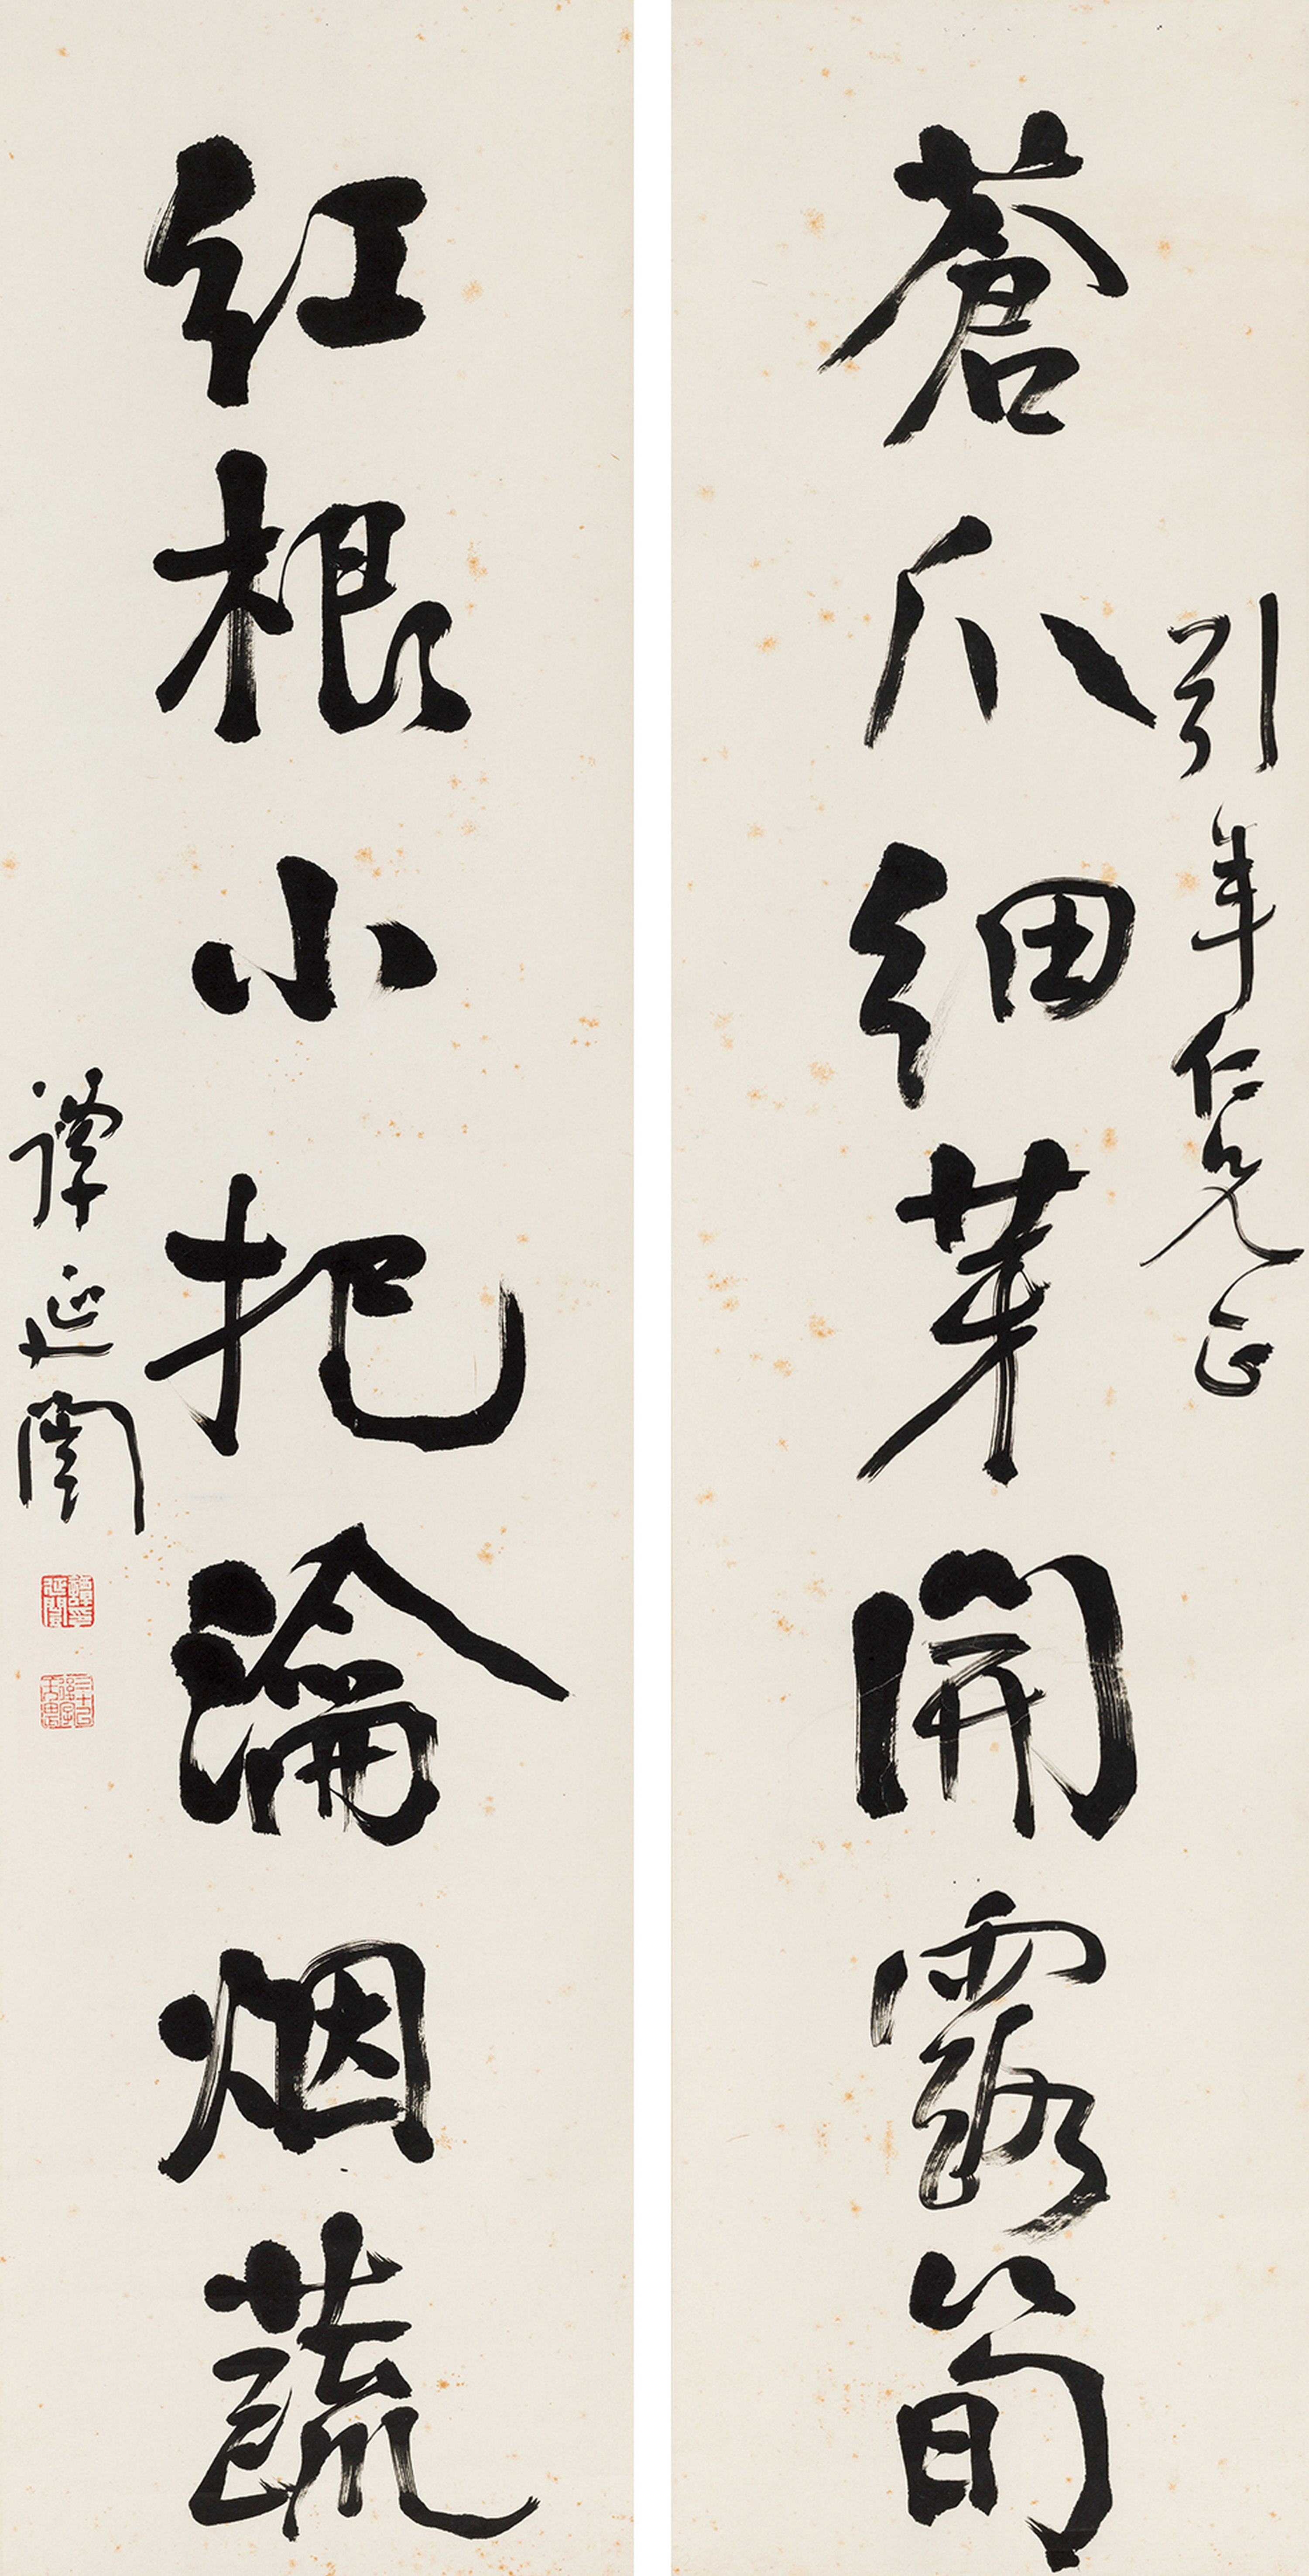 引年仁兄正
蒼爪細芽開露筍
紅根小把瀹烟蔬
譚延闓
譚延闓印